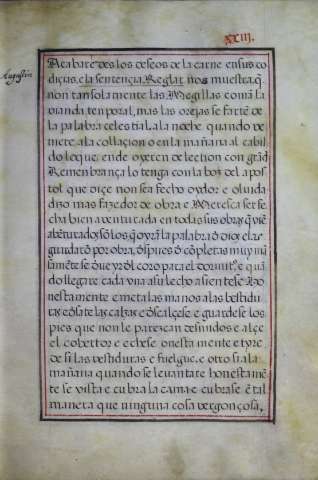 XXIII.
Augustin
Acabaredes los deseos de la carne en sus co
diçias, e la sentençia Reglar nos muestra, q̃
non tan sola mente las Megillas comã la
vianda tenporal, mas las orejas se farten de
la palabra celestial, a la noche quando ve
niere a la collaçion o en la mañana al cabil
do lo que ende oyeren de lection con grãd
Remenbrança lo tenga con la boz del apos
tol que diçe non sea fecho oydor e oluida
dizo mas fazedor de obra e Meresca ser fe
cha bien aventurada en todas sus obras, q̃
son los q̃ oyrã la palabra d̃ dios, e la
guardarẽ por obra,
do llegare cada vna a su lecho asiente se ho
nesta mente e meta las manos a las vestidu
ras e guarde se los
pies que non le parezcan desnudos e alçe
el cobertor e eche se onesta mente e tyre
de si las vestiduras e fuelgue, e otro si a la
mañana quando se levantare honestamẽ
te se vista e cubra la cama e cubra se ẽ tal
manera que ninguna cosa vergonçosa,